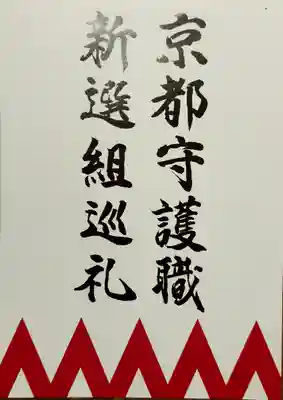 京都守護職
新選組巡礼